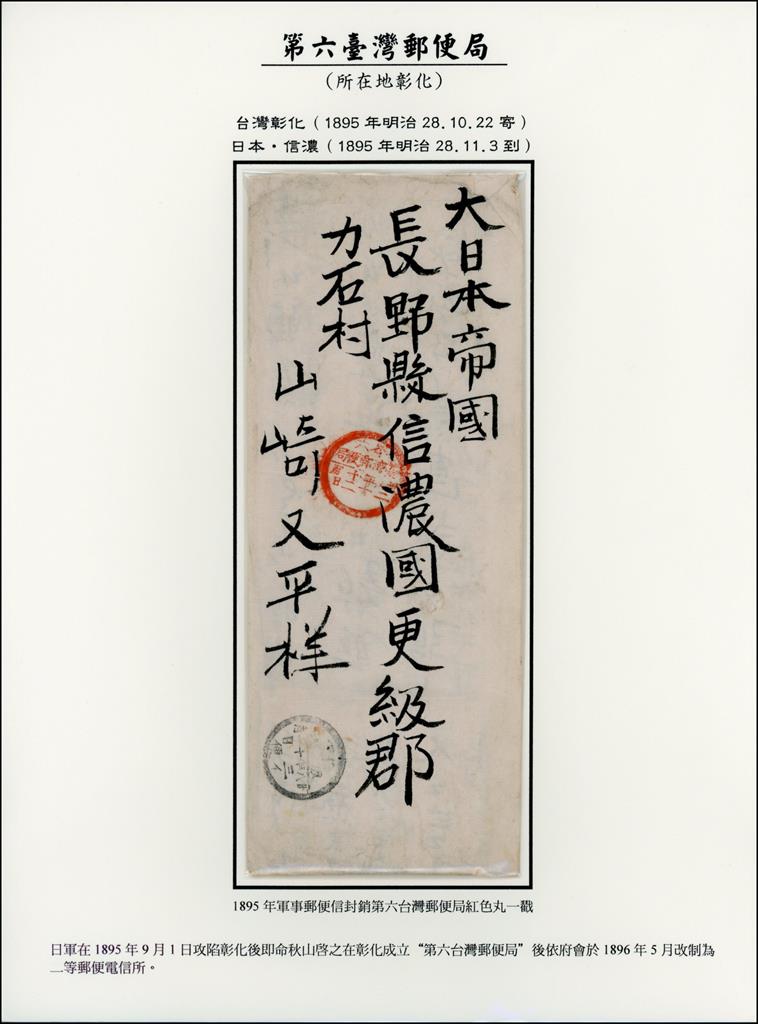 第六臺灣郵便局
（所在地彰化）
台灣彰化（1895 年明治 28.10.22 寄）
日本・信濃（1895 年明治 28.11.3 到）
大日本帝國
長野縣信濃國更級郡
力石村
山崎又平様
1895 年軍事郵便信封銷第六台灣郵便局紅色丸一戳
日軍在 1895 年 9 月 1 日攻陷彰化後即命秋山啓之在彰化成立“第六台灣郵便局”後依府會於 1896 年 5 月改制為
二等郵便電信所。